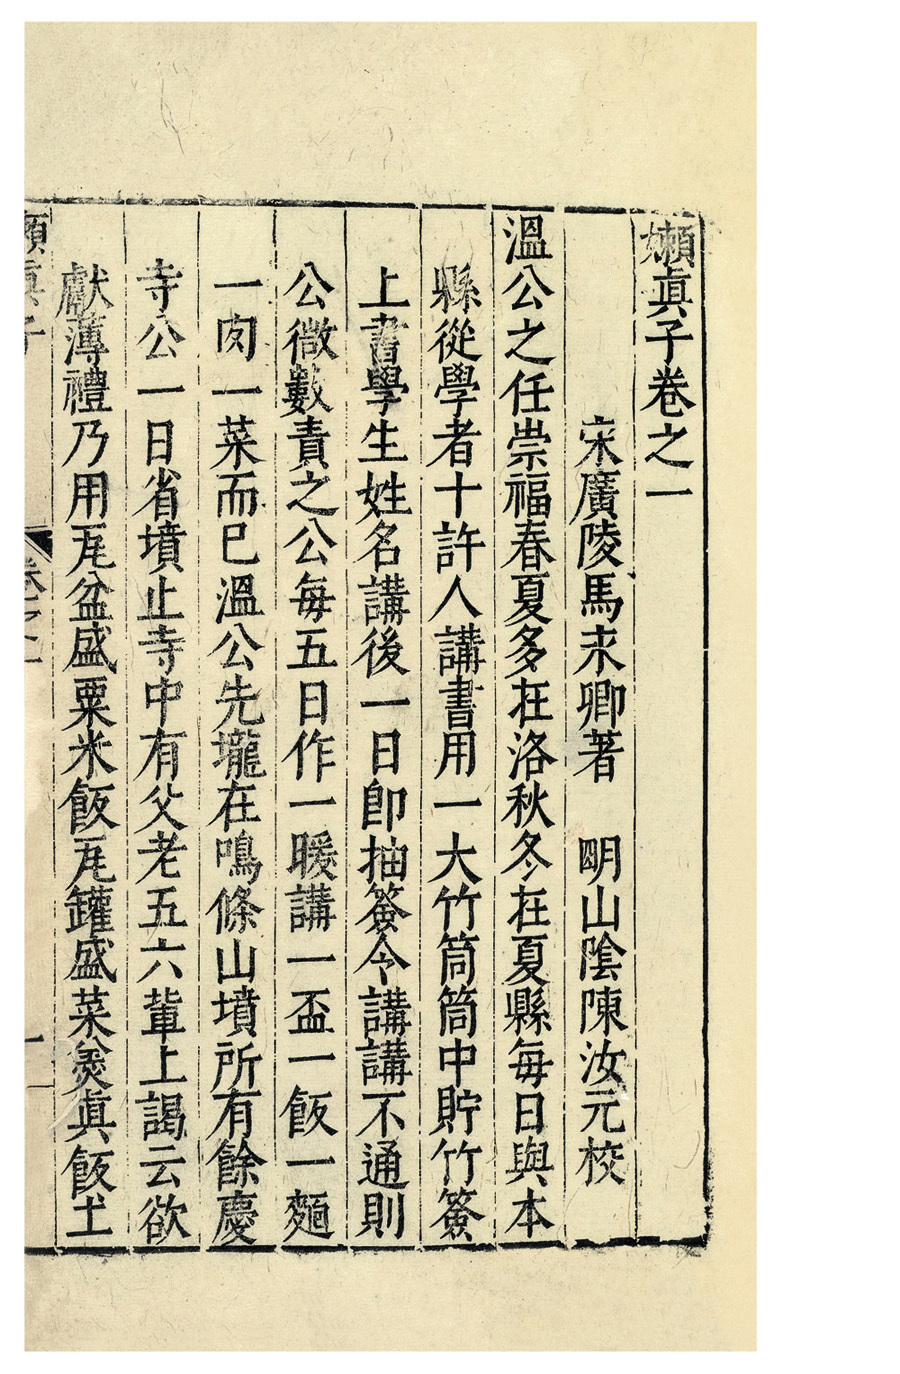 嬾真子卷之一
宋廣陵馬永卿著　明山陰陳汝元校
溫公之任崇福春夏多在洛秋冬在夏縣每日與本
縣從學者十許人講書用一大竹筒筒中貯竹簽
上書學生姓名講後一日卽抽簽令講講不通則
公微數責之公每五日作一暖講一盃一飯一麵
一肉一菜而已溫公先壠在鳴條山墳所有餘慶
寺公一日省墳止寺中有父老五六輩上謁云欲
獻薄禮乃用瓦盆盛粟米飯瓦罐盛菜羹真飯土
嬾真子　卷之一　一